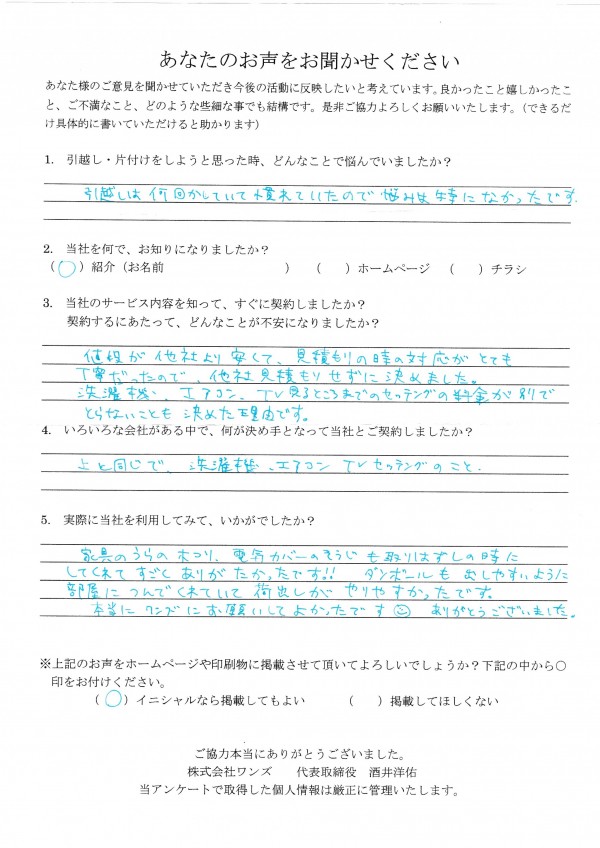 あなたのお声をお聞かせください
あなた様のご意見を聞かせていただき今後の活動に反映したいと考えています。良かったこと嬉しかったこ
と、ご不満なこと、どのような些細な事でも結構です。是非ご協力よろしくお願いいたします。（できるだ
け具体的に書いていただけると助かります）
1. 引越し・片付けをしようと思った時、どんなことで悩んでいましたか？
引越しは何回かしていて慣れていたので悩みは特になかったです.
2. 当社を何で、お知りになりましたか？
（○）紹介（お名前　　　　　　　　　）（　）ホームページ （　）チラシ
3. 当社のサービス内容を知って、すぐに契約しましたか？
契約するにあたって、どんなことが不安になりましたか？
値段が他社より安くて、見積もりの時の対応がとても
丁寧だったので、他社見積もりせずに決めました。
洗濯機、エアコン、TV見るところまでのセッテングの料金が別で
とらないことも決めた理由です。
4. いろいろな会社がある中で、何が決め手となって当社とご契約しましたか？
上と同じで、洗濯機、エアコン TVセッテングのこと.
5. 実際に当社を利用してみて、いかがでしたか？
家具のうらのホコリ、電気カバーのそうじも取りはずしの時に
してくれてすごくありがたかったです!! ダンボールも出しやすいように
部屋につんでくれていて荷出しがやりやすかったです。
本当にワンズにお願いしてよかったです☺ ありがとうございました。
※上記のお声をホームページや印刷物に掲載させて頂いてよろしいでしょうか？下記の中から○
印をお付けください。
（○）イニシャルなら掲載してもよい　　（　）掲載してほしくない
ご協力本当にありがとうございました。
株式会社ワンズ　　代表取締役　酒井洋佑
当アンケートで取得した個人情報は厳正に管理いたします。